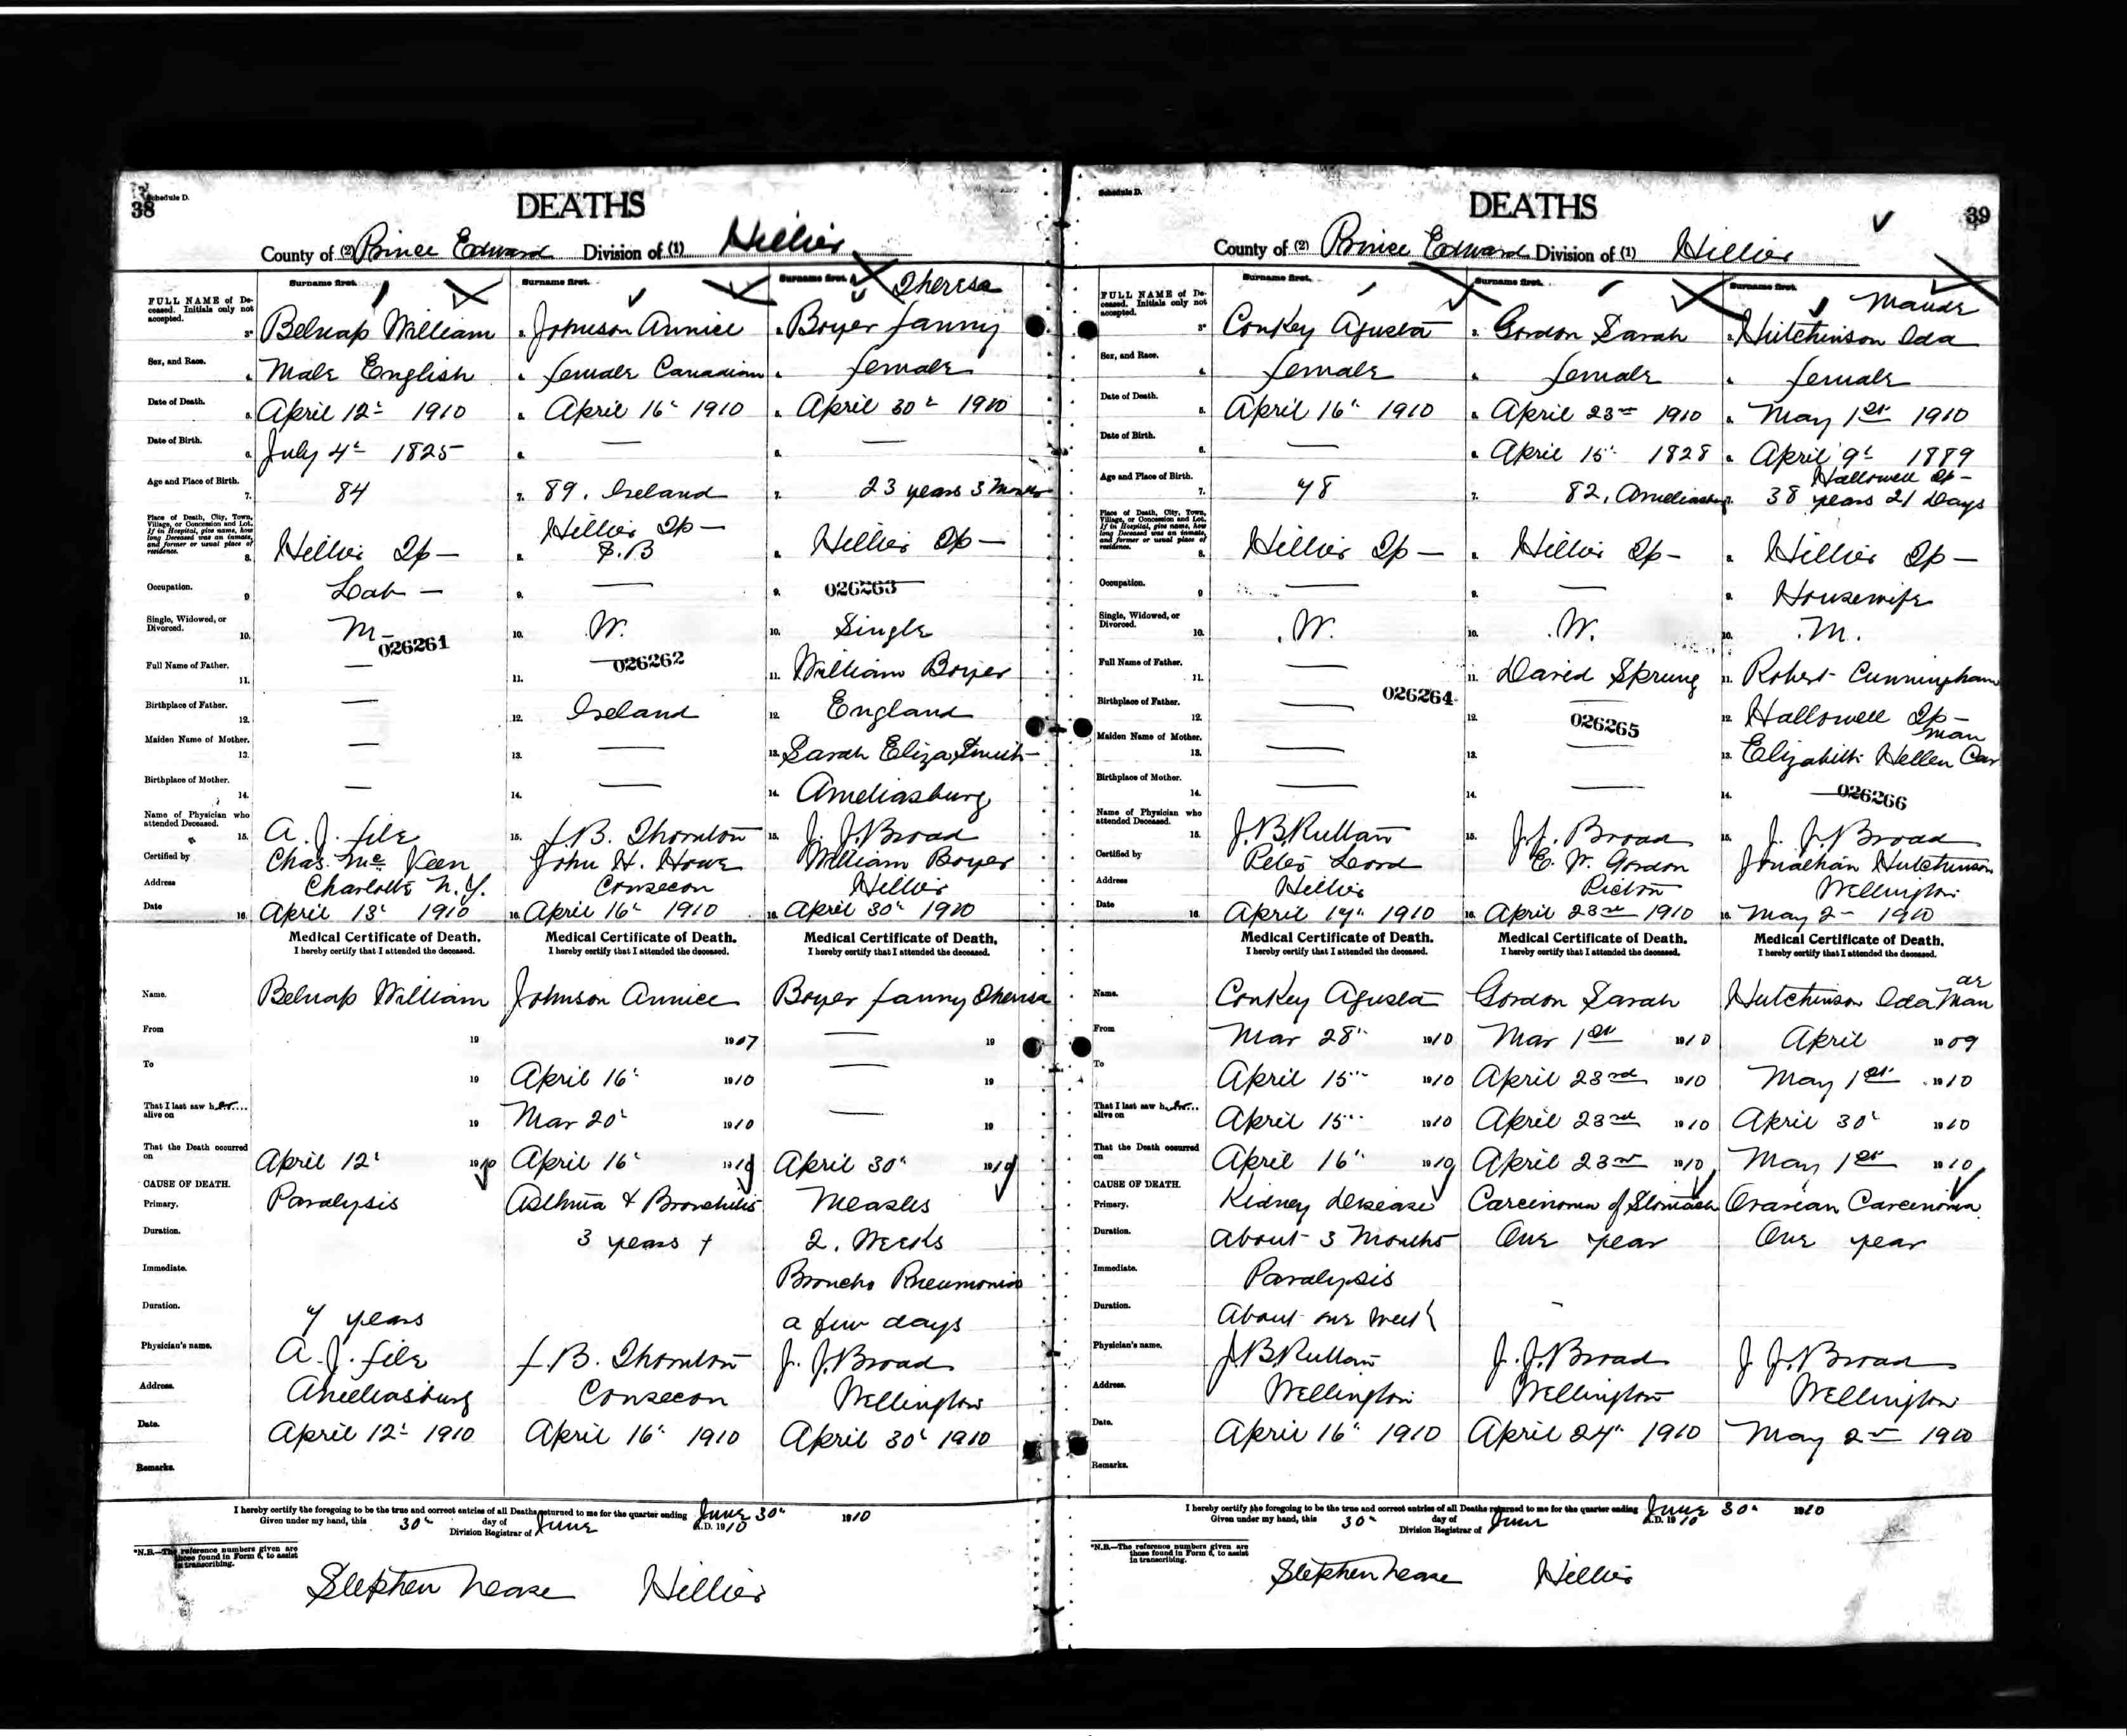 Schedule D.
38
DEATHS
County of (2) Prince Edward Division of (1) Hillier
Surname first. Surname first. Surname first. Theresa
FULL NAME of Deceased. Initials only not accepted. Belnap William Johnson Annice Boyer fanny
Sex, and Race. Male English female Canadian female
Date of Death. April 12th 1910 April 16th 1910 April 30th 1910
Date of Birth. July 4th 1825 — —
Age and Place of Birth. 7. 84 7. 89. Ireland 7. 23 years 3 Months
Place of Death, City, Town, Village, or Concession and Lot. If in Hospital, give name, how long Deceased was an inmate, and former or usual place of residence. 8. Hillier Tp— 8. Hillier Tp— S.B 8. Hillier Tp—
Occupation. 9 Lab — 9. — 9. 026263
Single, Widowed, or Divorced. 10. M— 026261 10. W. 10. Single
Full Name of Father. 11. — 11. — 026262 11. William Boyer
Birthplace of Father. 12. — 12. Ireland 12. England
Maiden Name of Mother. 13. — 13. — 13. Sarah Eliza Smith
Birthplace of Mother. 14. — 14. — 14. Ameliasburg
Name of Physician who attended Deceased. 15. A. J. file 15. f.B. Thornton 15. J. J. Broad
Certified by Chas. Mc Keen John H. Howe William Boyer
Address Charlotte N.Y. Consecon Hillier
Date 16. April 13th 1910 16. April 16th 1910 16. April 30th 1910
Medical Certificate of Death. Medical Certificate of Death. Medical Certificate of Death.
I hereby certify that I attended the deceased. I hereby certify that I attended the deceased. I hereby certify that I attended the deceased.
Name. Belnap William Johnson Annice Boyer fanny Theresa
From 19 1907 — 19
To 19 April 16th 1910 — 19
That I last saw h er.... alive on 19 Mar 20th 1910 — 19
That the Death occurred on April 12th 1910 April 16th 1910 April 30th 1910
CAUSE OF DEATH.
Primary. Paralysis Asthma & Bronchitis Measles
Duration. 3 years + 2. Weeks
Immediate. Broncho Pneumonia
Duration. 7 years a few days
Physician's name. A. J. file f.B. Thornton J. J. Broad
Address. Ameliasburg Consecon Wellington
Date. April 12th 1910 April 16th 1910 April 30th 1910
Remarks.
I hereby certify the foregoing to be the true and correct entries of all Deaths returned to me for the quarter ending June 30th 1910
Given under my hand, this 30th day of June A.D. 1910
Division Registrar of
*N.B.—The reference numbers given are those found in Form 6, to assist in transcribing.
Stephen Nease Hillier
Schedule D.
39
DEATHS
County of (2) Prince Edward Division of (1) Hillier
Surname first. Surname first. Surname first. Maude
FULL NAME of Deceased. Initials only not accepted. Conkey Agusta Gordon Sarah Hutchinson Ida
Sex, and Race. female female female
Date of Death. April 16th 1910 April 23rd 1910 May 1st 1910
Date of Birth. — April 15th 1828 April 9th 1889
Hallowell Tp—
Age and Place of Birth. 7. 78 7. 82, Ameliasburg 7. 38 years 21 Days
Place of Death, City, Town, Village, or Concession and Lot. If in Hospital, give name, how long Deceased was an inmate, and former or usual place of residence. 8. Hillier Tp— 8. Hillier Tp— 8. Hillier Tp—
Occupation. 9 — 9. — 9. Housewife
Single, Widowed, or Divorced. 10. W. 10. W. 10. M.
Full Name of Father. 11. — 11. David Sprung 11. Robert Cunningham
Birthplace of Father. 12. — 026264 12. 026265 12. Hallowell Tp—
man
Maiden Name of Mother. 13. — 13. — 13. Elizabeth Hellen Car
Birthplace of Mother. 14. — 14. — 14. — 026266
Name of Physician who attended Deceased. 15. J.B. Ruttan 15. J.J. Broad 15. J. J. Broad
Certified by Peter Leord E. W. Gordon Jonathan Hutchinson
Address Hillier Picton Wellington
Date 16. April 17th 1910 16. April 23rd 1910 16. May 2— 1910
Medical Certificate of Death. Medical Certificate of Death. Medical Certificate of Death.
I hereby certify that I attended the deceased. I hereby certify that I attended the deceased. I hereby certify that I attended the deceased.
Name. Conkey Agusta Gordon Sarah Hutchinson Ida
From Mar 28th 1910 Mar 1st 1910 April 1909
To April 15th 1910 April 23rd 1910 May 1st 1910
That I last saw h er.... alive on April 15th 1910 April 23rd 1910 April 30th 1910
That the Death occurred on April 16th 1910 April 23rd 1910 May 1st 1910
CAUSE OF DEATH.
Primary. Kidney disease Carcinoma of Stomach Ovarian Carcinoma
Duration. About 3 Months One year One year
Immediate. Paralysis
Duration. About one week
Physician's name. J.B. Ruttan J.J. Broad J. J. Broad
Address. Wellington Wellington Wellington
Date. April 16th 1910 April 24th 1910 May 2nd 1910
Remarks.
I hereby certify the foregoing to be the true and correct entries of all Deaths returned to me for the quarter ending June 30th 1910
Given under my hand, this 30th day of June A.D. 1910
Division Registrar of
*N.B.—The reference numbers given are those found in Form 6, to assist in transcribing.
Stephen Nease Hillier